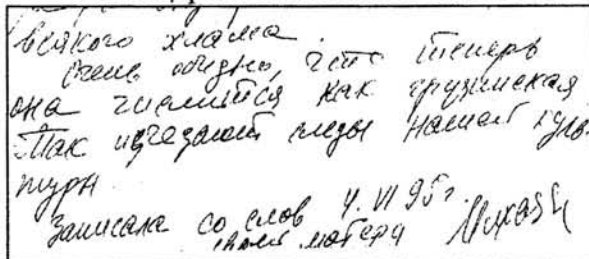 всякого хлама.
Очень обидно, что теперь
она числится как грузинская
Так исчезают следы нашей куль-
туры
Записала со слов 4. VI 95 г.
моей матери